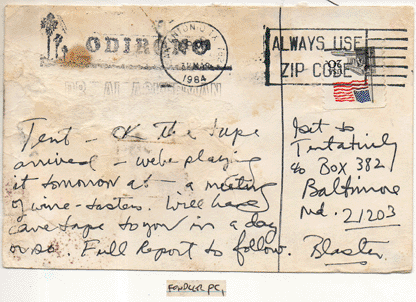 ODIRONO
ANTONIO, TX
MAR
1984
ALWAYS USE
ZIP CODE
20
Tent – OK the tape
arrived – we're playing
it tomorrow at – a meeting
of wine-tasters. Will have
tape to you in a day
or so. Full Report to follow.
to
Tentatively
c/o Box 382
Baltimore
Md. 21203
Blaster
PC,